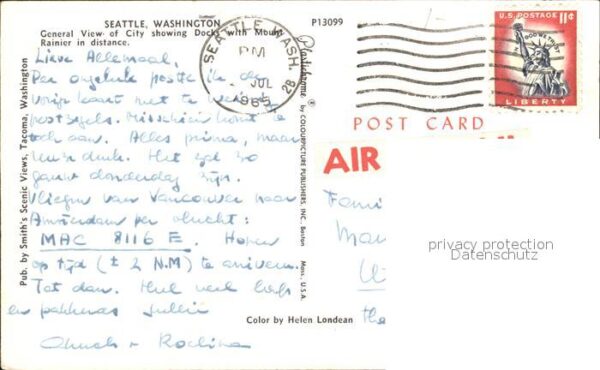 SEATTLE, WASHINGTON
General View of City showing Docks with Mount
Rainier in distance.
P13099
Lieve Allemaal,
Per ongeluk postte ik de
vorige kaart met te weinig
postzegels. Misschien komt ie
toch aan. Alles prima, maar
druk. Het zal zo
gauw donderdag zijn.
Vliegen van Vancouver naar
Amsterdam per vlucht:
MAC 8116 E. Hopen
op tijd (± 2 N.M) te arriveren.
Tot dan. Heel veel liefs
en pakkerds jullie
Pub. by Smith's Scenic Views, Tacoma, Washington
Plastichrome ® by COLOURPICTURE PUBLISHERS, INC. Boston Mass. U.S.A.
Color by Helen Londean
SEATTLE, WASH.
PM
JUL
1965
2B
U.S. POSTAGE 11¢
IN GOD WE TRUST
LIBERTY
POST CARD
AIR
Fami
the
privacy protection
Datenschutz